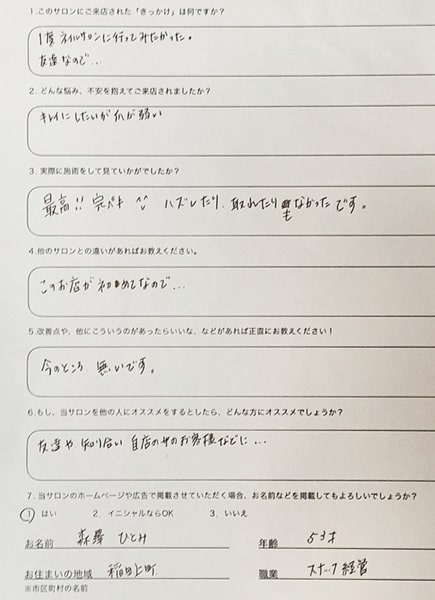 1.このサロンにご来店された「きっかけ」は何ですか?
1度ネイルサロンに行ってみたかった。
友達なので…
2.どんな悩み、不安を抱えてご来店されましたか?
キレイにしたいが爪が弱い
3.実際に施術をして見ていかがでしたか?
最高!! 完ペキ ハズレたり、取れたりもなかったです。
4.他のサロンとの違いがあればお教えください。
このお店が初めてなので…
5.改善点や、他にこういうのがあったらいいな、などがあれば正直にお教えください!
今のところ 無いです。
6.もし、当サロンを他の人にオススメをするとしたら、どんな方にオススメでしょうか?
友達や 知り合い 自店のお客様などに…
7.当サロンのホームページや広告で掲載させていただく場合、お名前などを掲載してもよろしいでしょうか?
1. はい 2. イニシャルならOK 3. いいえ
お名前 森澤 ひとみ 年齢 53才
お住まいの地域 稲田上町 職業 スナック経営
※市区町村の名前